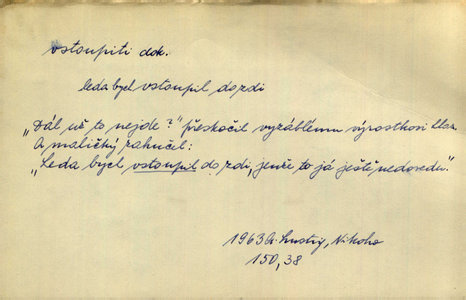 vstoupiti dok.
leda bych vstoupil do zdi
„Dál už to nejde?" přeskočil vyzáblému výrostkovi hlas.
A maličký zahučel:
„Leda bych vstoupil do zdi, jenže to já ještě nedovedu."
1963 A. Lustig, Nikoho
150, 38